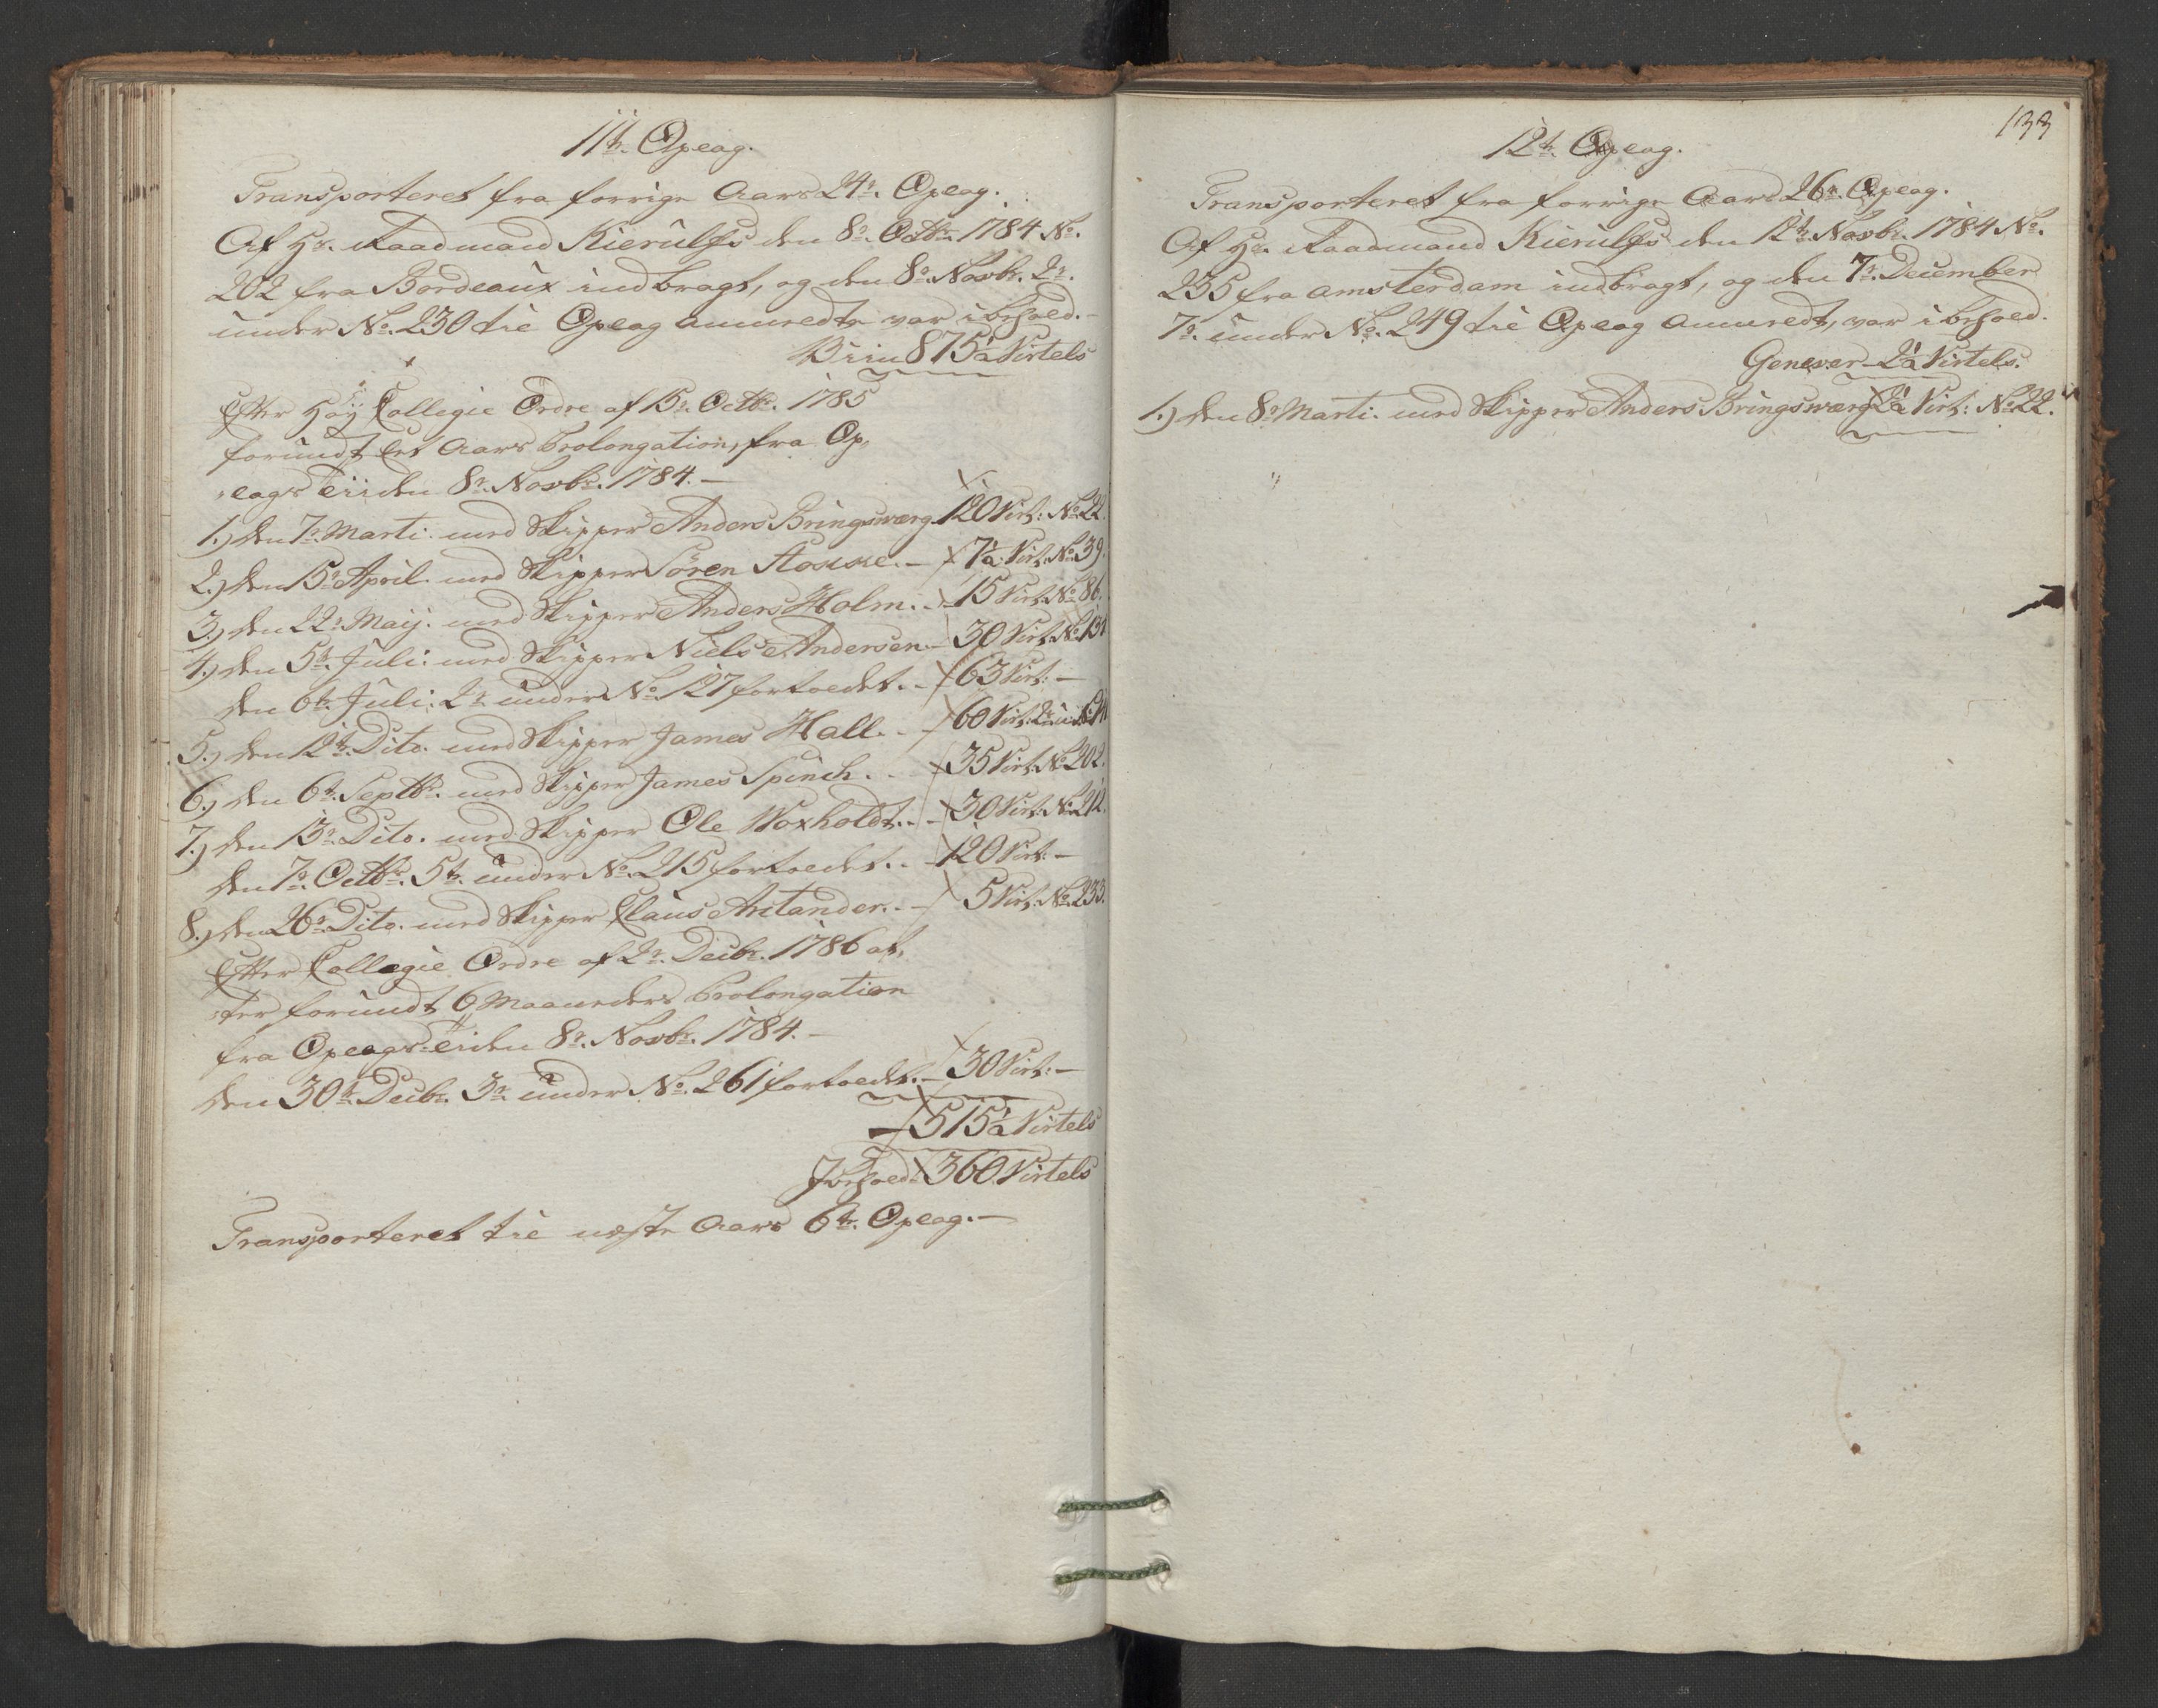 11te Oplag.
Transporteret fra forrige Aars 24de Oplag.
Af Hr. Raadmand Kierulfs den 8de Octbr. 1784 No.
202 fra Bordeaux indbragt, og den 8de Novbr. 2de
under No. 230 til Oplag anmeldte var i behold.-
Viin 875½ Virtels
Efter Høy Collegie Ordre af 15de Octbr. 1785
forundt Et Aars Prolongation, fra Op,
,lags Tiiden 8de Novbr. 1784.-
1.) den 7de Marti. med Skipper Anders Bringsværg 120 Virt: No. 22.
2.) den 15de April. med Skipper Sören Floxxe.- 7½ Virt: No. 39.
3.) den 22de Maij. med Skipper Anders Holm.- 15 Virt: No. 86.
4.) den 5te Juli: med Skipper Niels Andersen- 30 Virt: No. 131
den 6te Juli: 2de under No. 127 fortoldet.- 63 Virt:-
5.) den 12te Dito. med Skipper James Hall.- 60 Virt:
6.) den 6te Septbr. med Skipper James Spinch.- 35 Virt: No. 202.
7.) den 13de Dito. med Skipper Ole Woxholdt.- 30 Virt: No. 212.
den 7de Octbr. 5te under No. 215 fortoldet.- 120 Virt:-
8.) den 26de Dito. med Skipper Claus Artander.- 5 Virt: No. 233.
Efter Collegie Ordre af 2de Decbr. 1786 at,
,ter forundt 6 Maaneders Prolongation
fra Oplags Tiden 8de Novbr. 1784.-
den 30te Decbr. 3de under No. 261 fortoldet.- 30 Virt:-
515½ Virtels
I behold 360 Virtels
Transporteret til næste Aars 6te Oplag.-
133
12te Oplag.
Transporteret fra forrige Aars 26de Oplag.
Af Hr. Raadmand Kierulfs den 12te Novbr. 1784 No.
235 fra Amsterdam indbragt, og den 7de December
7de under No. 249 til Oplag anmeldt, var i behold.
Genever 2½ Virtels.
1.) den 8de Marti. med Skipper Anders Bringsværg 2½ Virt: No. 22.